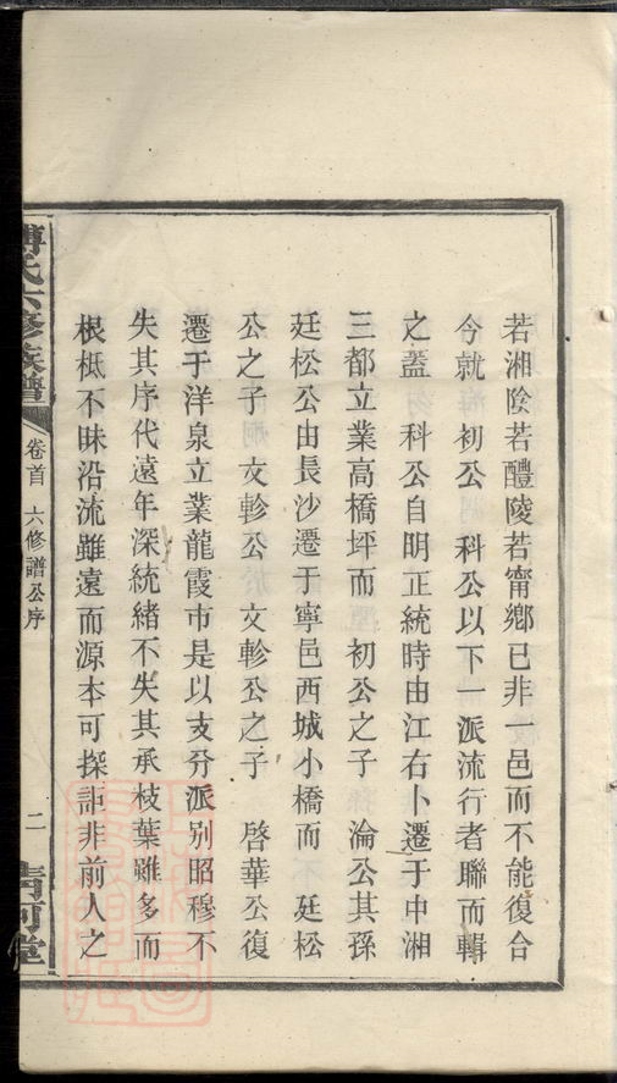 若湘陰若醴陵若甯鄉已非一邑而不能復合
今就 初公 科公以下一派流行者聯而輯
之蓋 科公自明正統時由江右卜遷于中湘
三都立業高橋坪而 初公之子 淪公其孫
廷松公由長沙遷于寧邑西城小橋而 廷松
公之子 文軫公 文軫公之子 啓華公復
遷于洋泉立業龍霞市是以支分派别昭穆不
失其序代遠年深統緒不失其承枝葉雖多而
根柢不昧沿流雖遠而源本可探詎非前人之
氏六修族譜 卷首 六修譜公序 二 清河堂